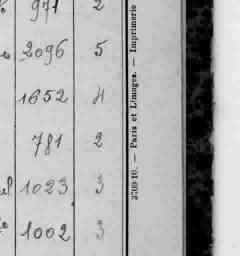 971 2
2096 5
1652 4
781 2
1023 3
1002 3
— Paris et Limoges. — Imprimerie